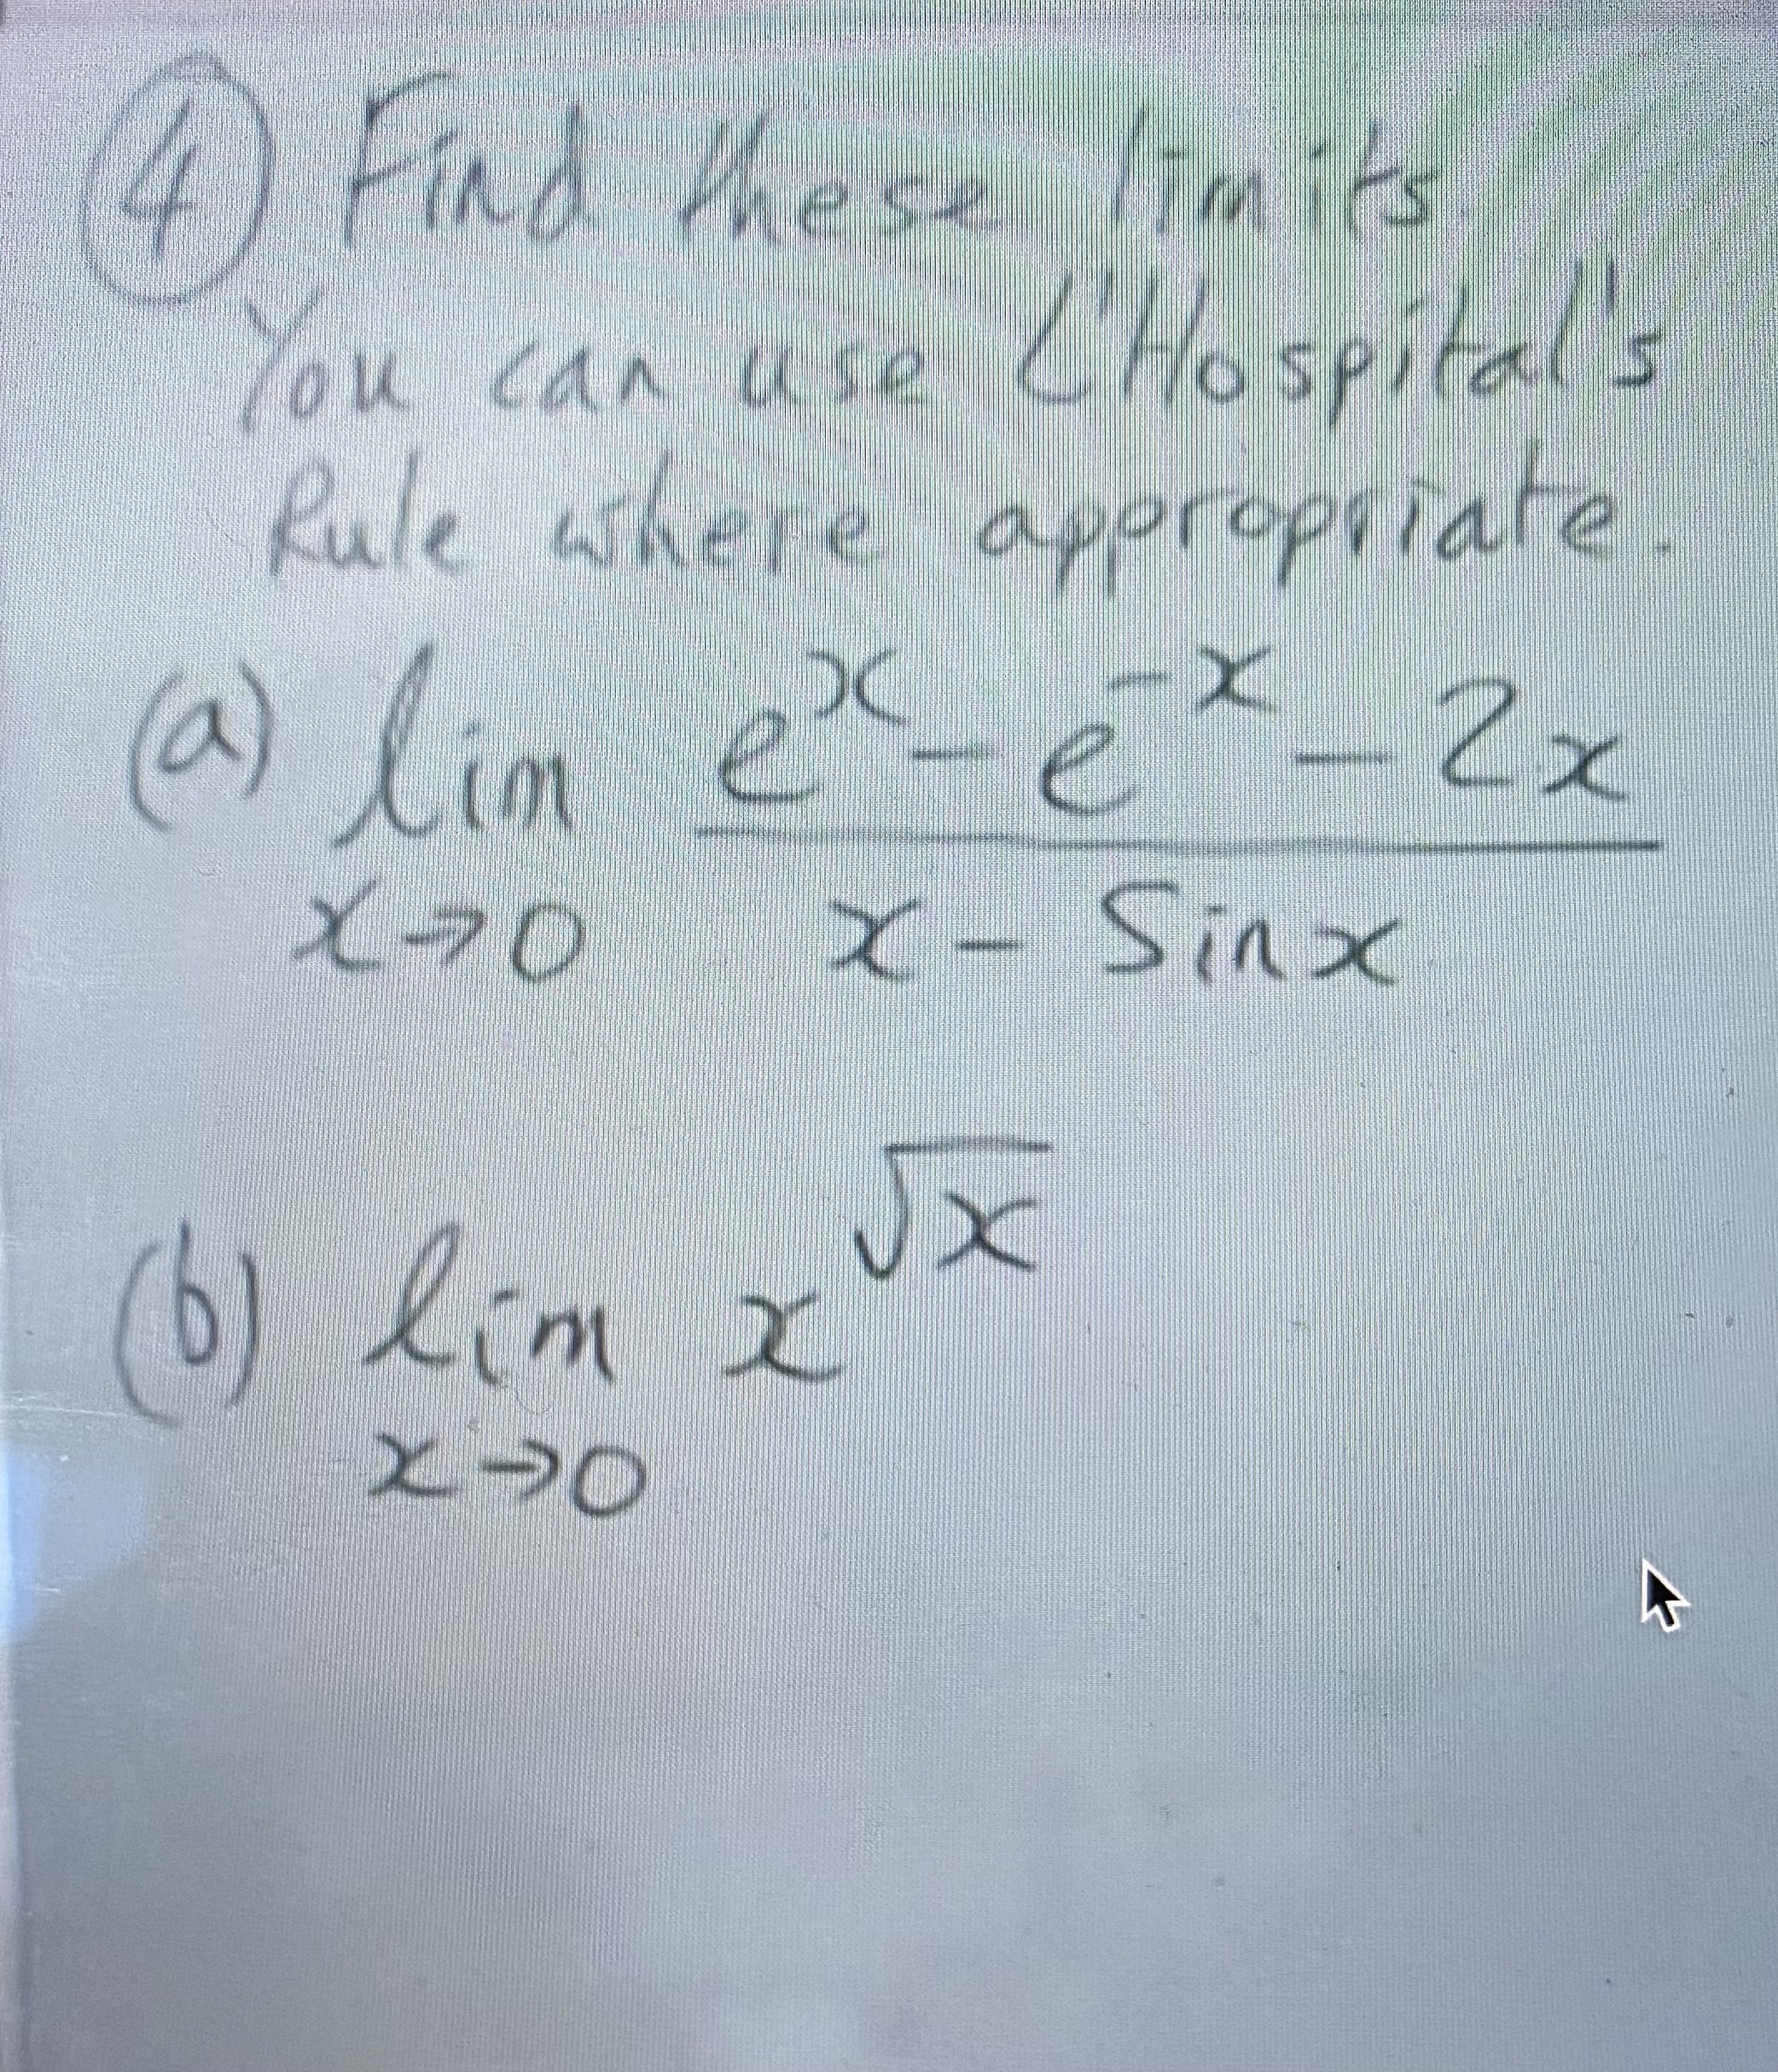 ④ Find these limits
You can use L'Hospital's
Rule where appropriate.
(a) lim e^x - e^-x - 2x
x→0 x - Sinx
(b) lim x^√x
x→0